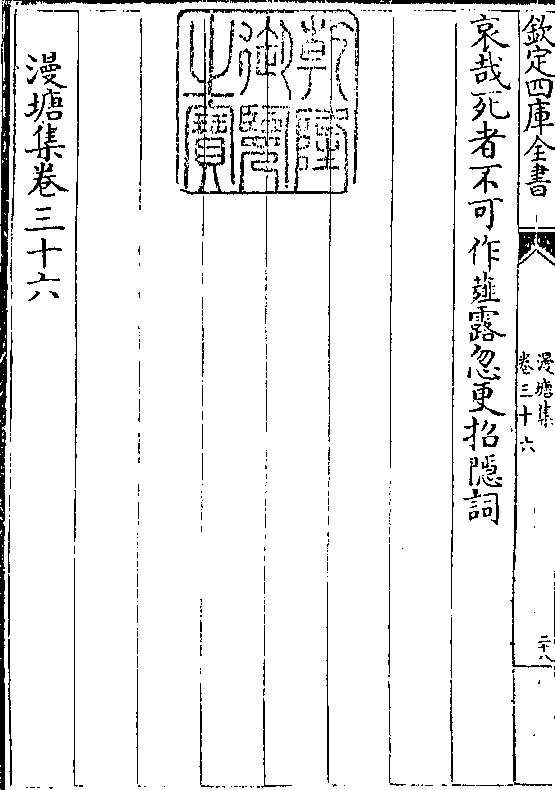 欽定四庫全書
漫塘集
卷三十六
二十八
哀哉死者不可作薤露忽更招隠詞
乾隆
御覽
之寶
漫塘集卷三十六